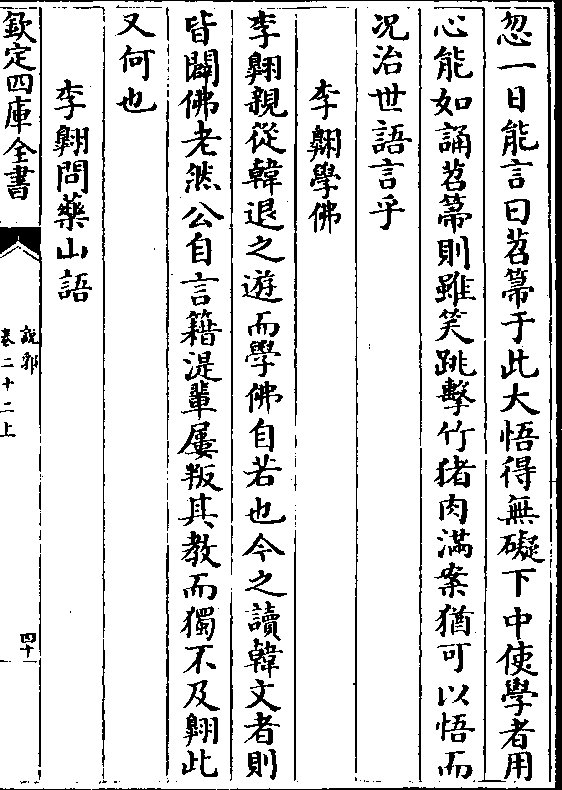 忽一日能言曰苕箒于此大悟得無礙下中使學者用
心能如誦苕箒則雖笑跳擊竹猪肉滿案猶可以悟而
况治世語言乎
李翱學佛
李翱親從韓退之遊而學佛自若也今之讀韓文者則
皆闢佛老然公自言籍湜輩屢叛其教而獨不及翱此
又何也
李翱問藥山語
欽定四庫全書
說郛
卷二十二上
四十